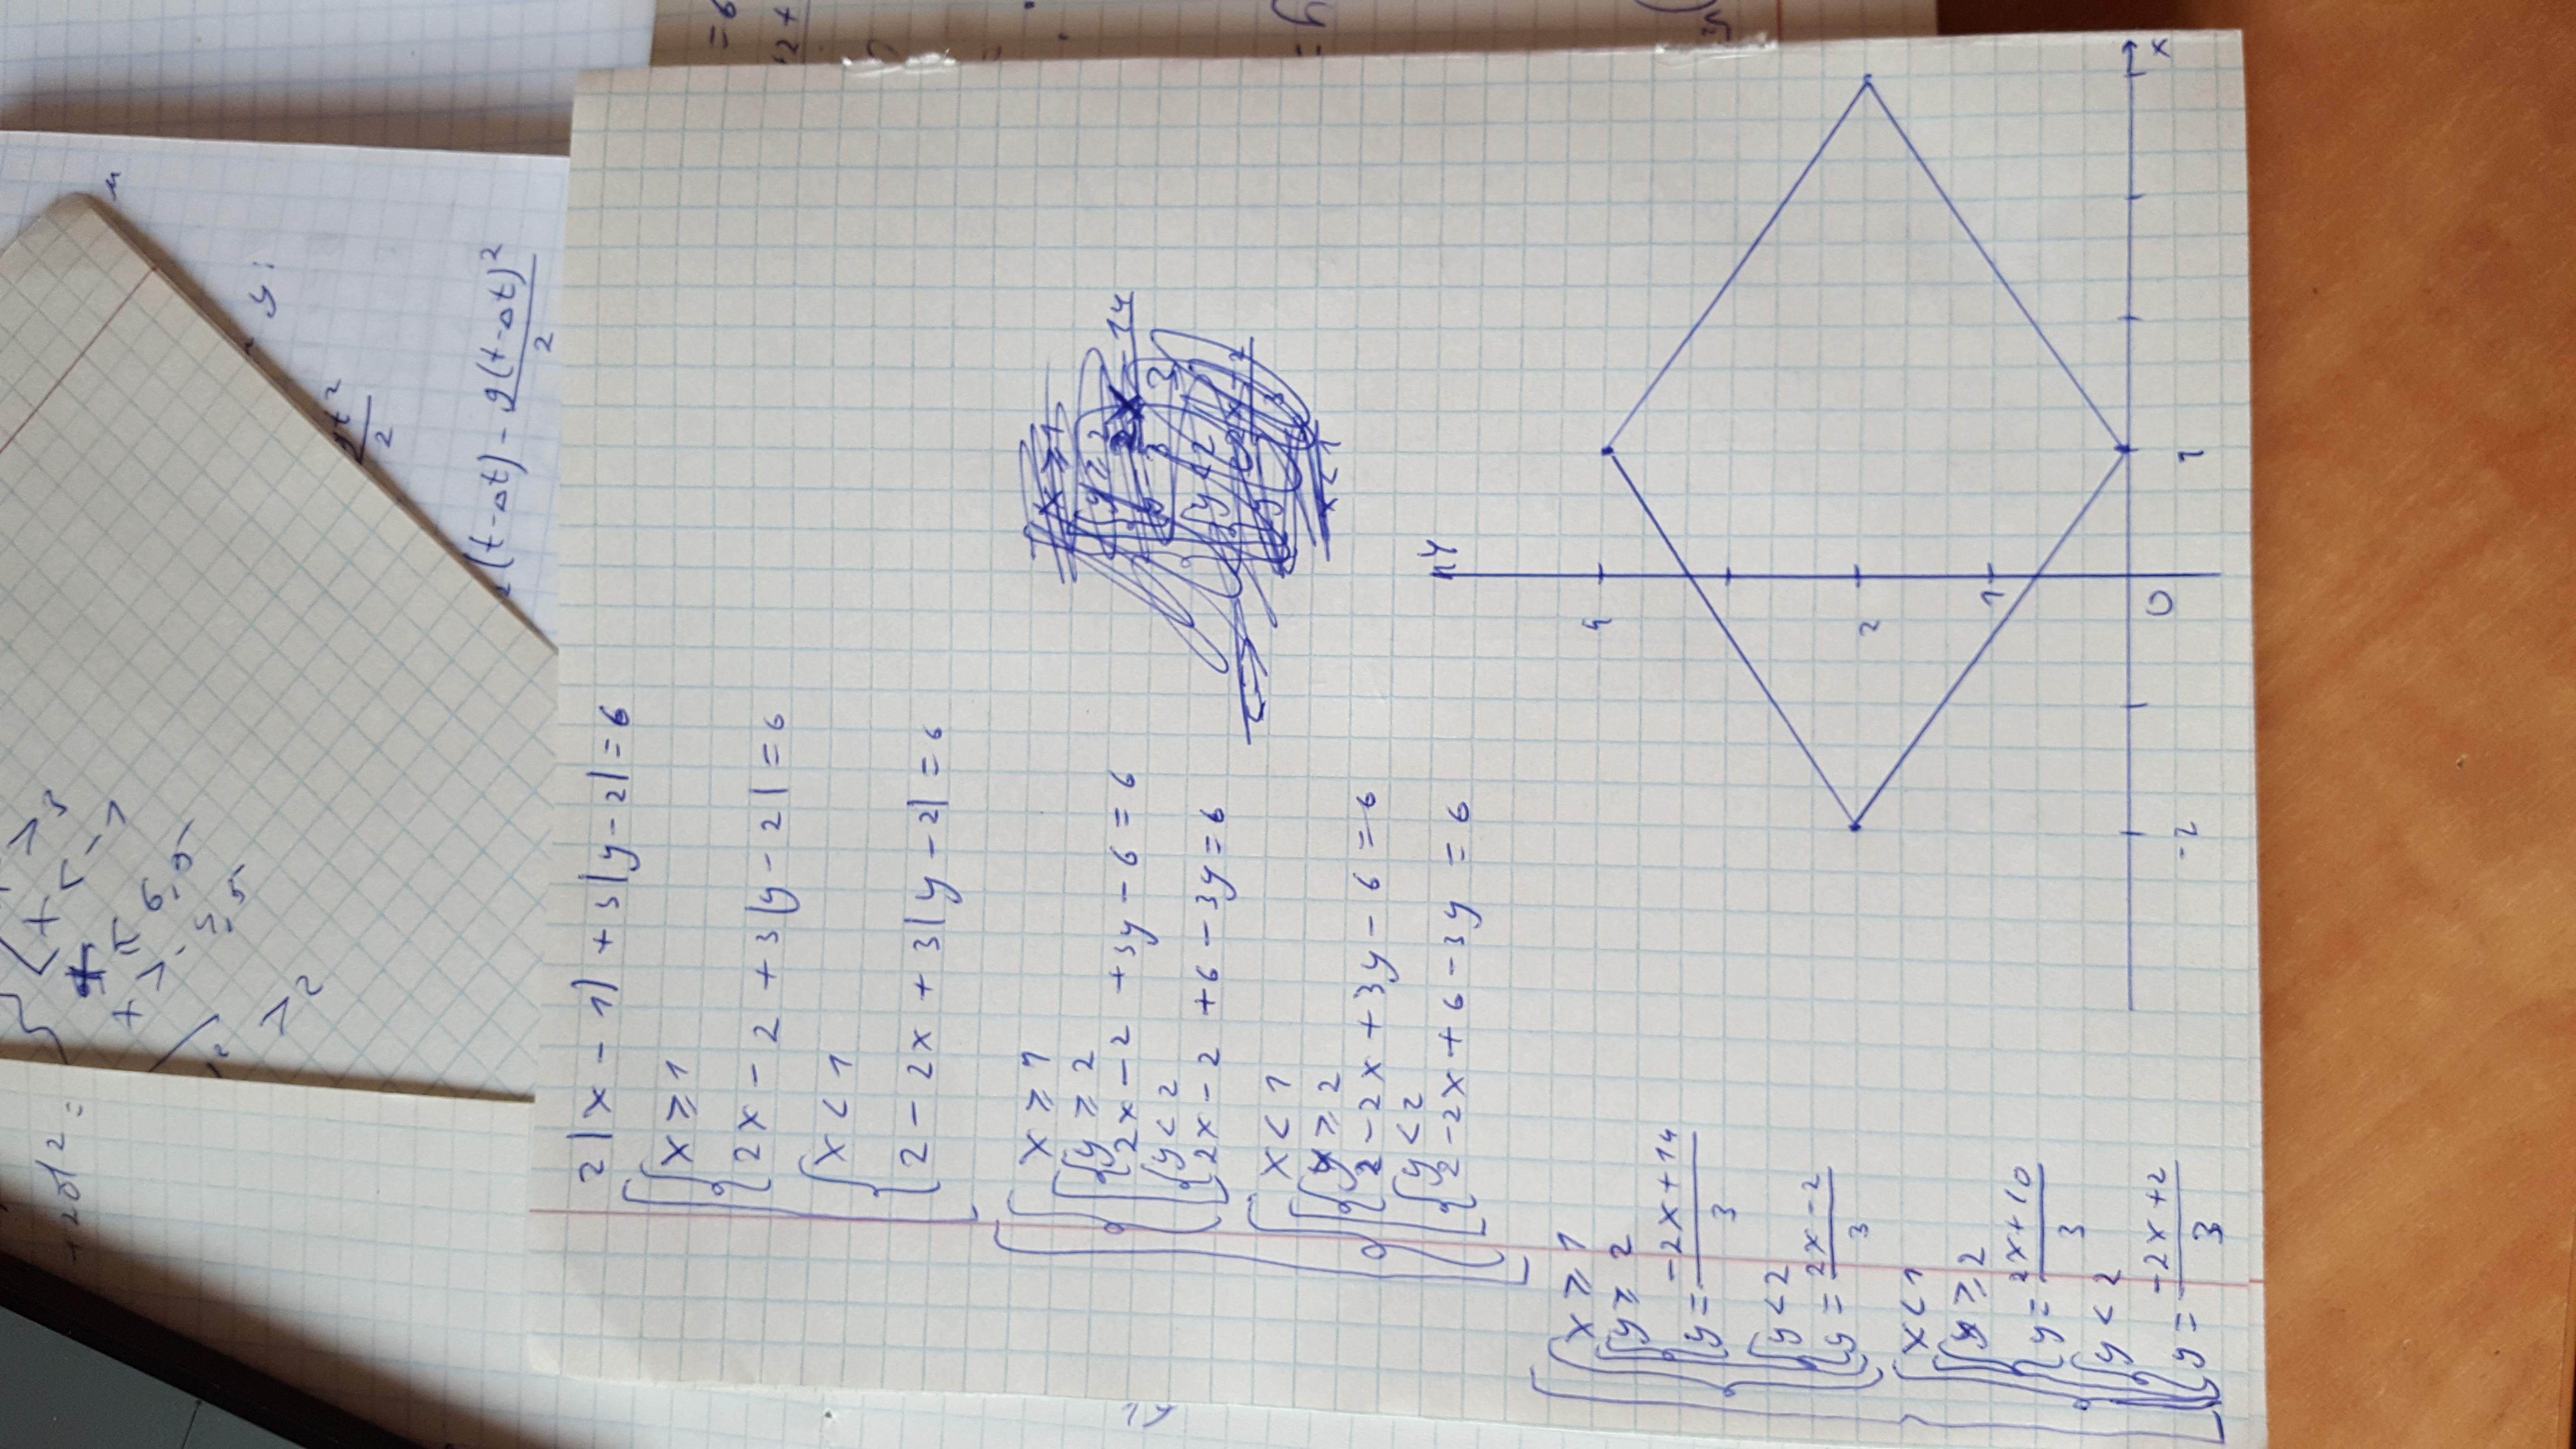 2|x-1|+3|y-2|=6
x≥1
2x-2+3|y-2|=6
x<1
2-2x+3|y-2|=6
x≥1
y≥2
2x-2+3y-6=6
y<2
2x-2+6-3y=6
x<1
y≥2
2-2x+3y-6=6
y<2
2-2x+6-3y=6
x≥1
y≥2
y=\frac{-2x+14}{3}
y<2
y=\frac{2x-2}{3}
x<1
y≥2
y=\frac{2x+10}{3}
y<2
y=\frac{-2x+2}{3}
y
4
2
1
-2
0
1
x
(t-Δt)-\frac{g(t-Δt)^2}{2}
y: